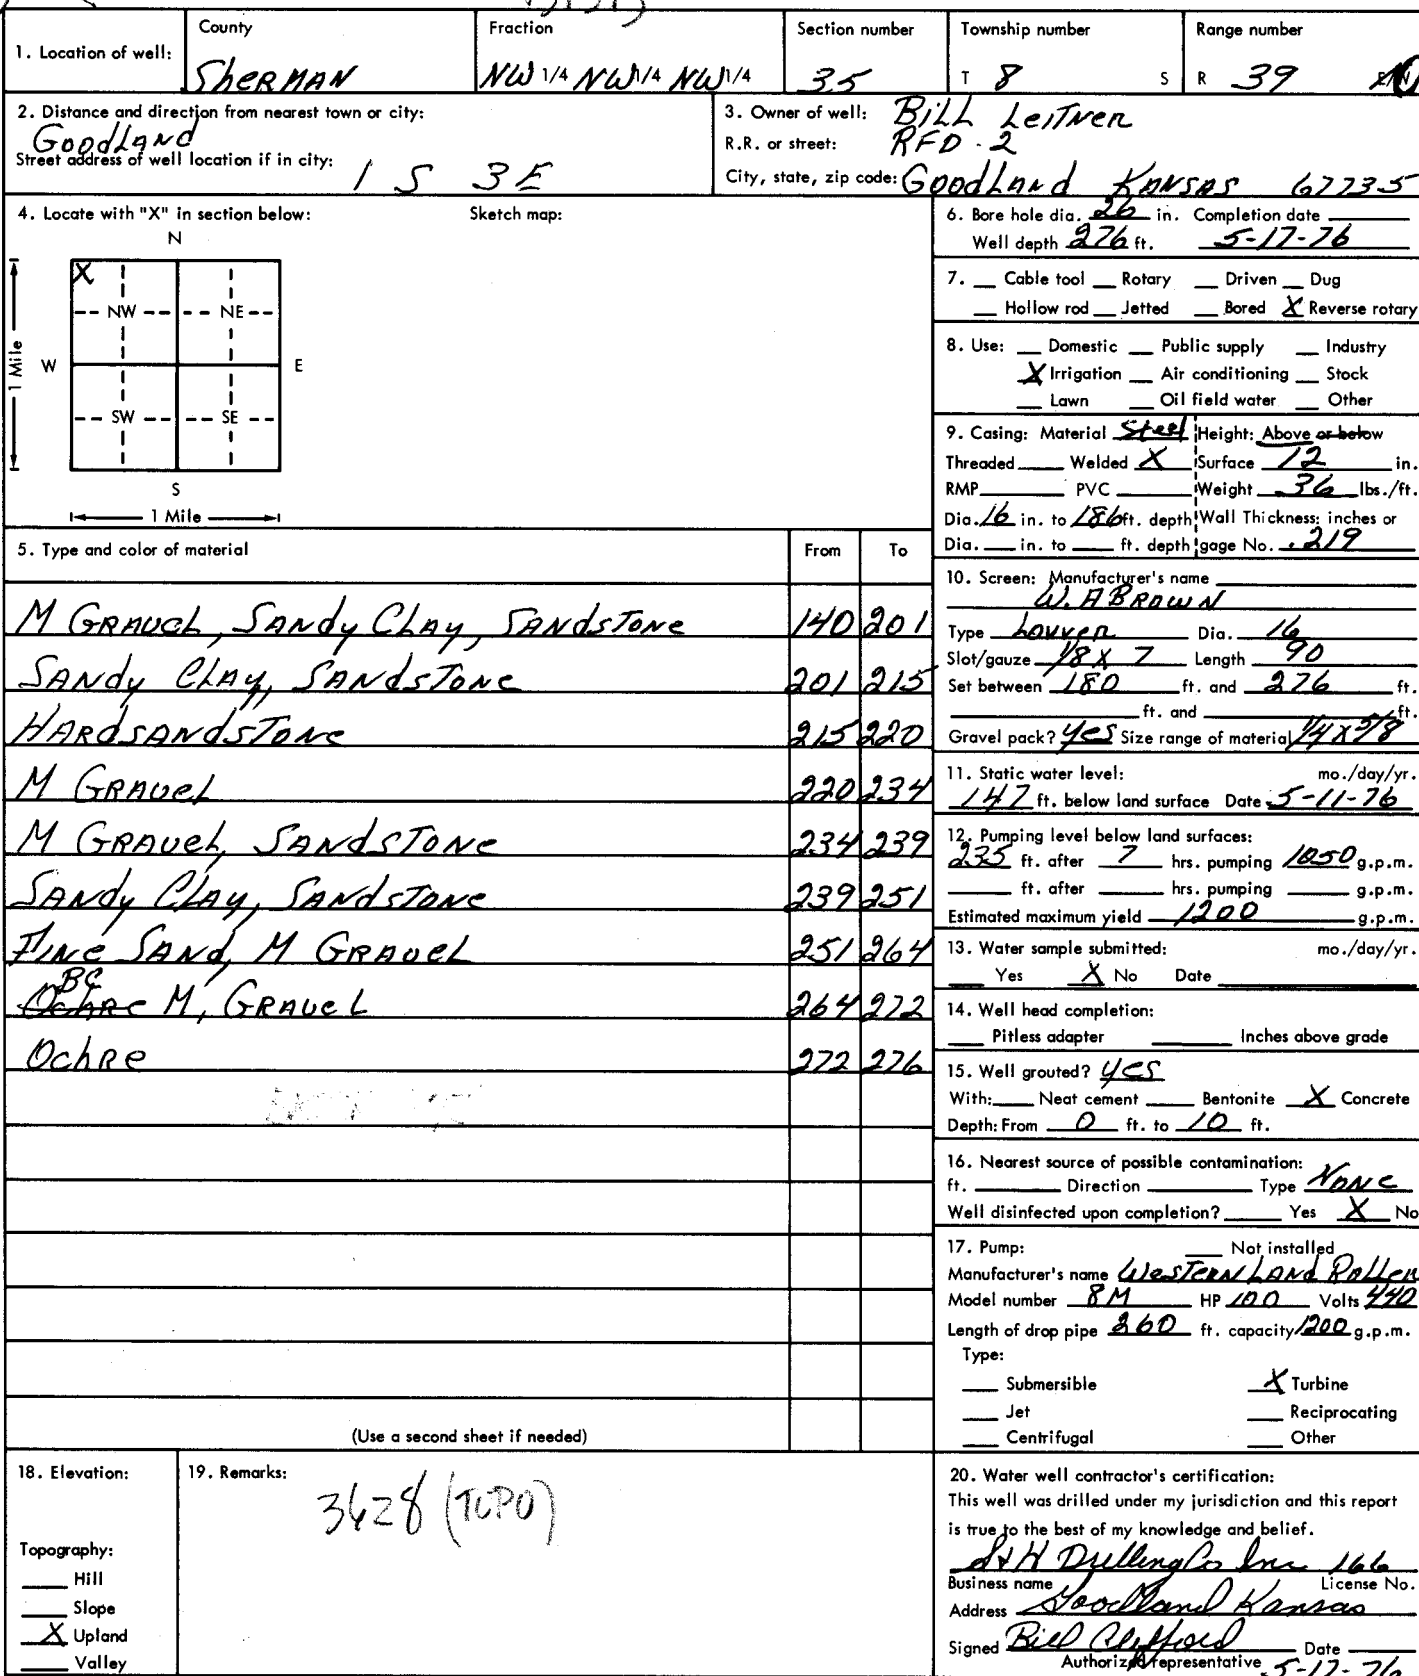 County Fraction Section number Township number Range number
1. Location of well: SherMAN NW 1/4 NW 1/4 NW 1/4 35 T 8 S R 39
2. Distance and direction from nearest town or city:
Goodland
Street address of well location if in city: 1 S 3E
3. Owner of well: Bill Leitner
R.R. or street: RFD-2
City, state, zip code: Goodland Kansas 67735
4. Locate with "X" in section below: Sketch map:
N
X
NW NE
W E
1 Mile
SW SE
S
1 Mile
5. Type and color of material From To
M Gravel, Sandy Clay, Sandstone 140 201
Sandy Clay, Sandstone 201 215
Hardsandstone 215 220
M Gravel 220 234
M Gravel, Sandstone 234 239
Sandy Clay, Sandstone 239 251
Fine Sand, M Gravel 251 264
BC
Ochre M, Gravel 264 272
Ochre 272 276
(Use a second sheet if needed)
6. Bore hole dia. 26 in. Completion date
Well depth 276 ft. 5-17-76
7. Cable tool Rotary Driven Dug
Hollow rod Jetted Bored X Reverse rotary
8. Use: Domestic Public supply Industry
X Irrigation Air conditioning Stock
Lawn Oil field water Other
9. Casing: Material Steel Height: Above or below
Threaded Welded X Surface 12 in.
RMP PVC Weight 36 lbs./ft.
Dia. 16 in. to 186 ft. depth Wall Thickness: inches or
Dia. in. to ft. depth gage No. .219
10. Screen: Manufacturer's name
W. A Brown
Type Louver Dia. 16
Slot/gauze 1/8 X 7 Length 90
Set between 180 ft. and 276 ft.
ft. and ft.
Gravel pack? yes Size range of material 1/4 X 5/8
11. Static water level: mo./day/yr.
147 ft. below land surface Date 5-11-76
12. Pumping level below land surfaces:
235 ft. after 7 hrs. pumping 1050 g.p.m.
ft. after hrs. pumping g.p.m.
Estimated maximum yield 1200 g.p.m.
13. Water sample submitted: mo./day/yr.
Yes X No Date
14. Well head completion:
Pitless adapter Inches above grade
15. Well grouted? yes
With: Neat cement Bentonite X Concrete
Depth: From 0 ft. to 10 ft.
16. Nearest source of possible contamination:
ft. Direction Type None
Well disinfected upon completion? Yes X No
17. Pump: Not installed
Manufacturer's name Western Land Roller
Model number 8M HP 100 Volts 440
Length of drop pipe 260 ft. capacity 1200 g.p.m.
Type:
Submersible X Turbine
Jet Reciprocating
Centrifugal Other
18. Elevation:
Topography:
Hill
Slope
X Upland
Valley
19. Remarks:
3628 (TOPO)
20. Water well contractor's certification:
This well was drilled under my jurisdiction and this report
is true to the best of my knowledge and belief.
S+H Drilling Co Inc 166
Business name License No.
Address Goodland Kansas
Signed Bill Clifford Date
Authorized representative 5-17-76